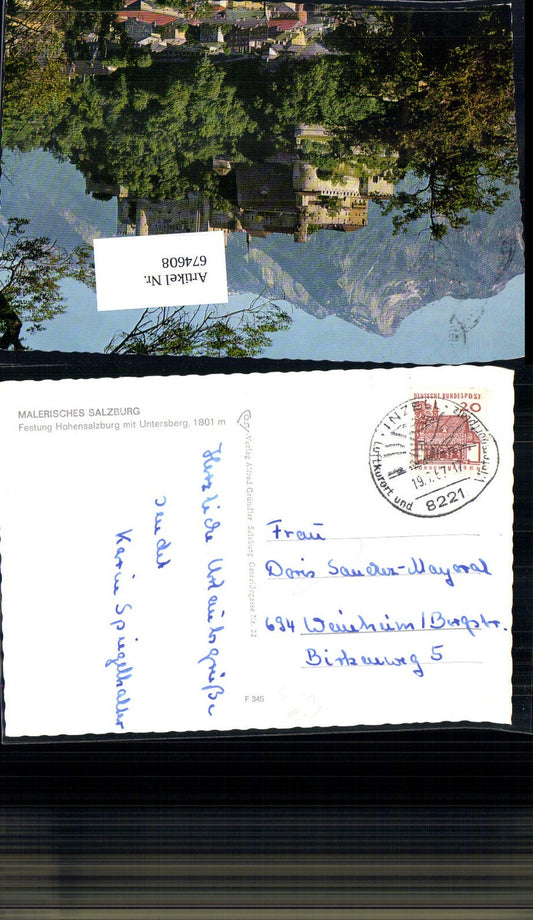 Artikel Nr.
674608
MALERISCHES SALZBURG
Festung Hohensalzburg mit Untersberg, 1801 m
Verlag Alfred Gründler Salzburg
Herzliche Urlaubsgrüße
sendet
Karin Spiegelhalter
F 345
DEUTSCHE BUNDESPOST
20
INZELL
19.7.67-17
Luftkurort und
8221
Frau
Doris Sander-Mayoral
694 Weinheim/Bergstr.
Birkenweg 5